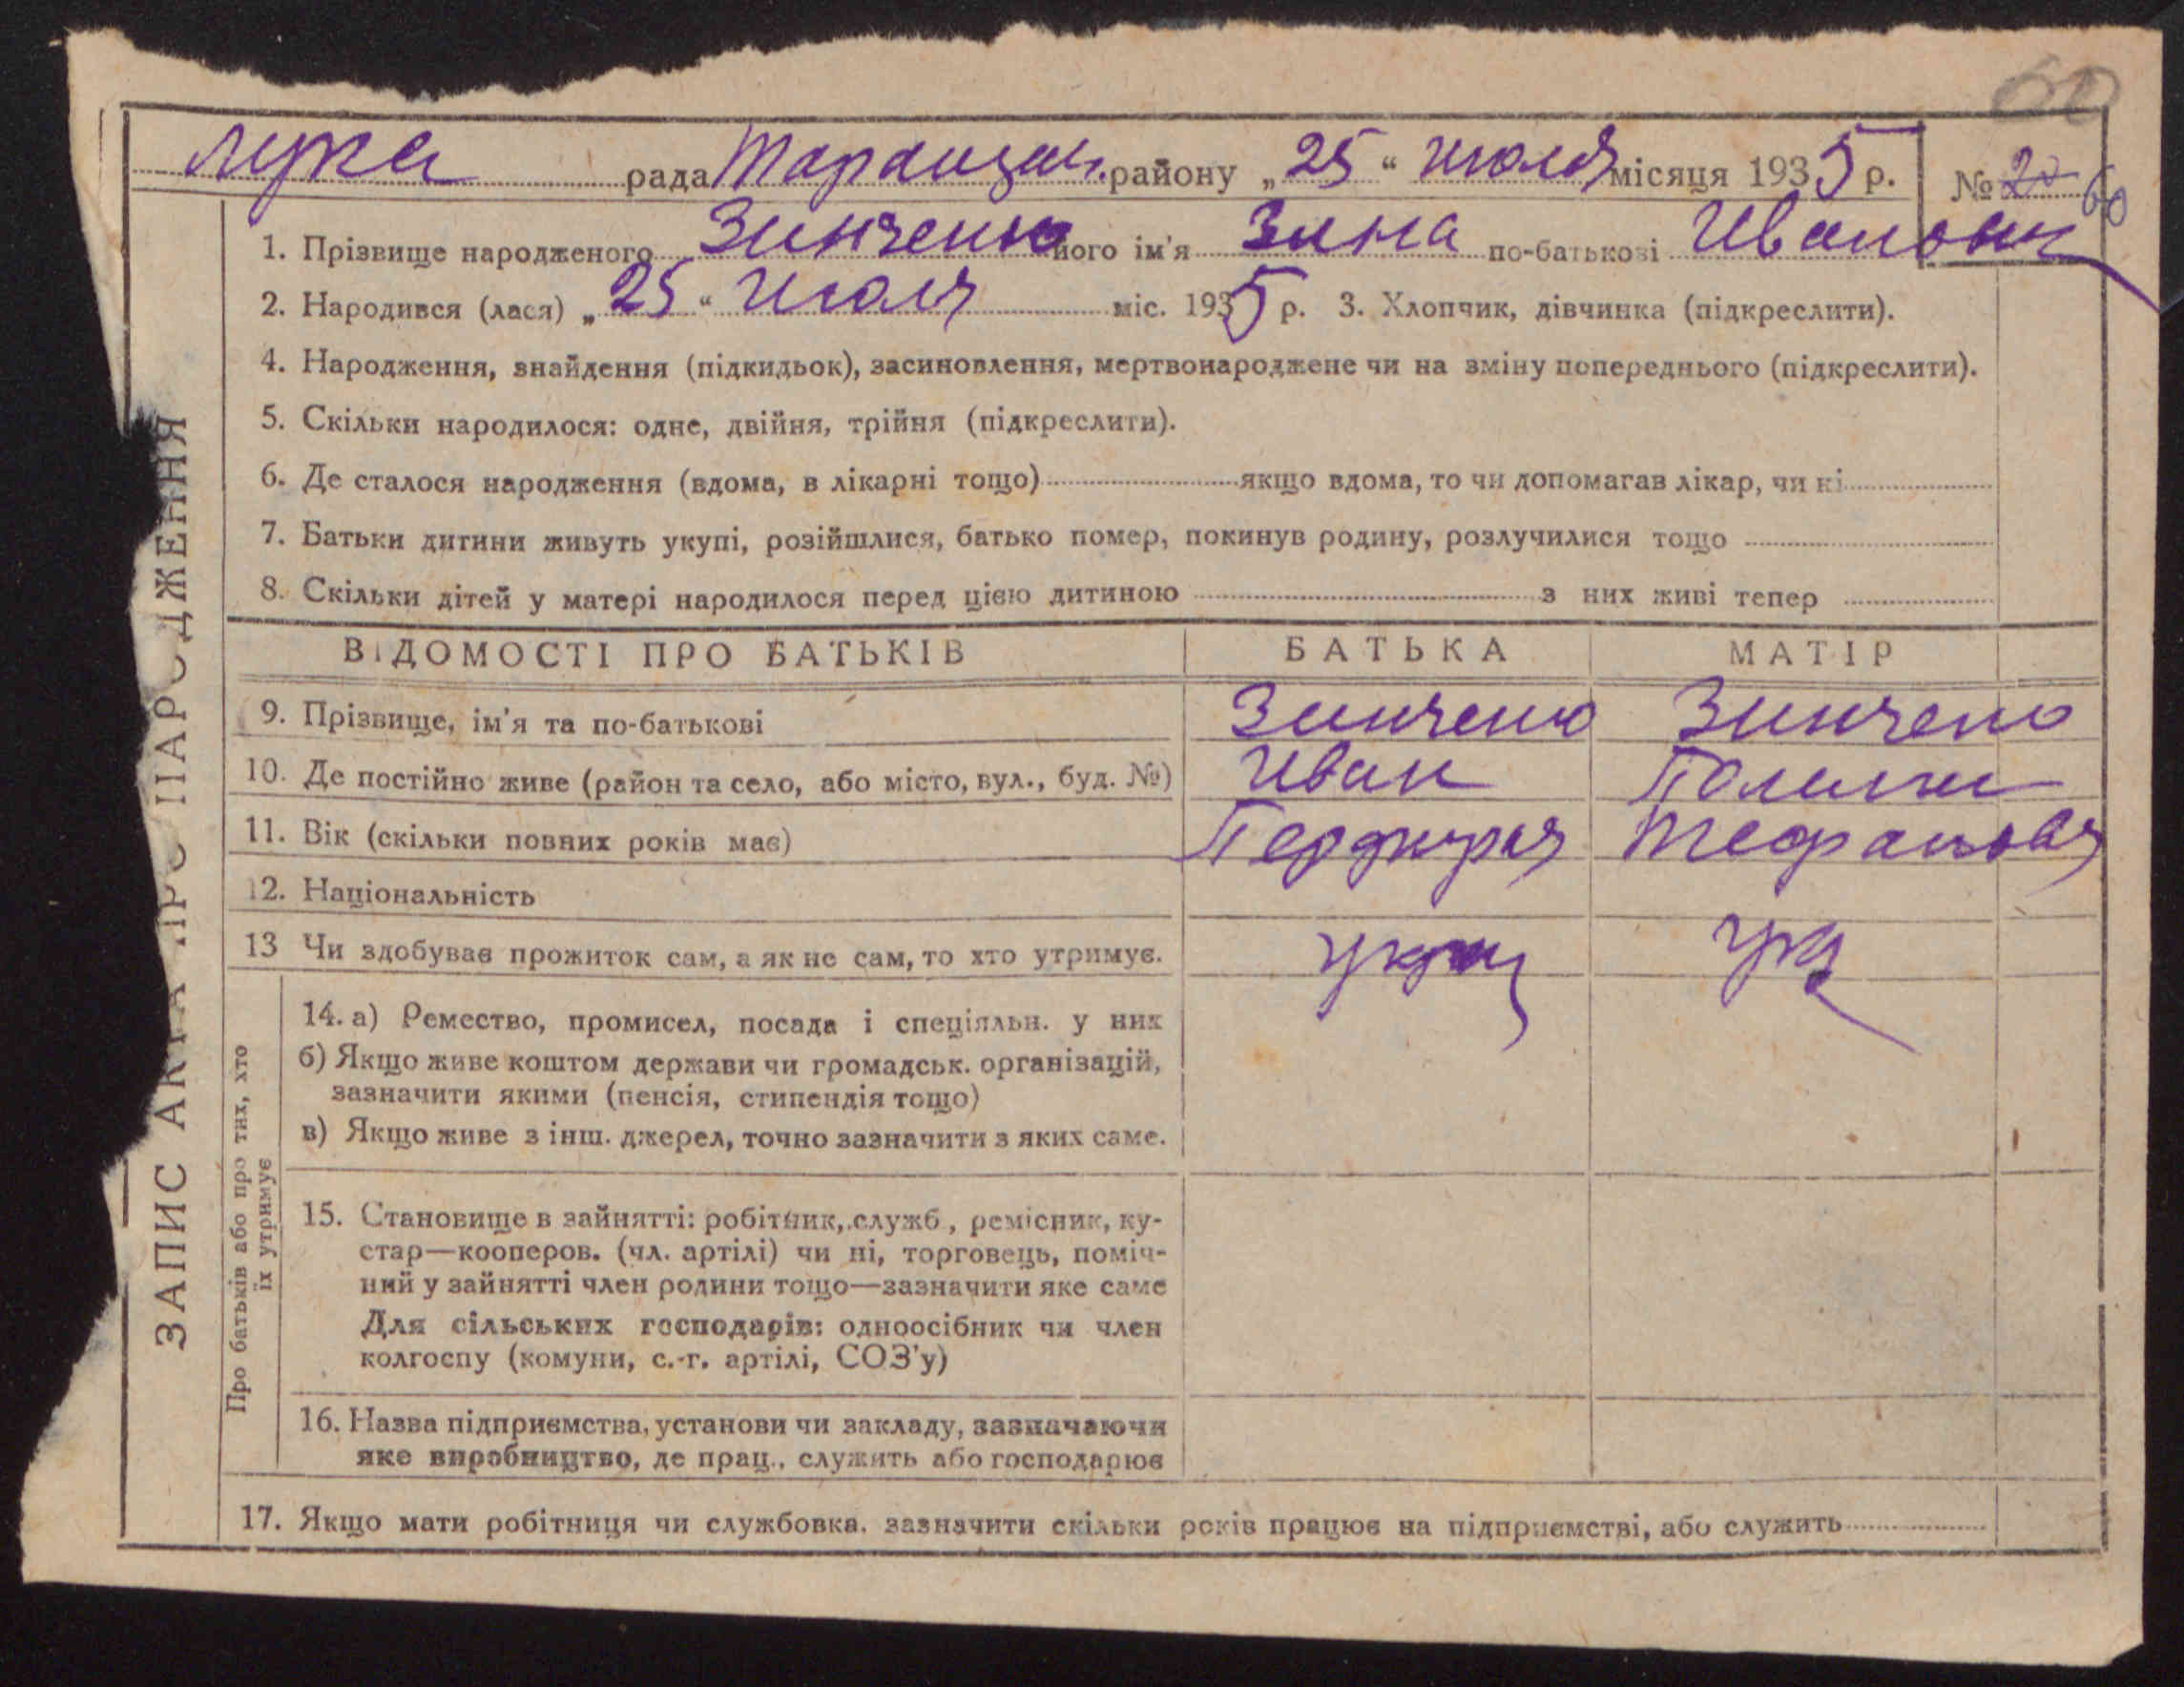 60
Лука рада Таращан. району „25“ Июля місяця 1935 р. № 20 60
1. Прізвище народженого Зинченко його ім'я Зина по-батькові Иванов
2. Народився (лася) „25“ Июля міс. 1935 р. 3. Хлопчик, дівчинка (підкреслити).
4. Народження, знайдення (підкидьок), засиновлення, мертвонароджене чи на зміну попереднього (підкреслити).
5. Скільки народилося: одне, двійня, трійня (підкреслити).
6. Де сталося народження (вдома, в лікарні тощо) якщо вдома, то чи допомагав лікар, чи ні
7. Батьки дитини живуть укупі, розійшлися, батько помер, покинув родину, розлучилися тощо
8. Скільки дітей у матері народилося перед цією дитиною з них живі тепер
ЗАПИС АКТА ПРО НАРОДЖЕННЯ
ВІДОМОСТІ ПРО БАТЬКІВ БАТЬКА МАТІР
9. Прізвище, ім'я та по-батькові Зинченко Зинченко
10. Де постійно живе (район та село, або місто, вул., буд. №) Иван
11. Вік (скільки повних років має)
12. Національність
13 Чи здобуває прожиток сам, а як не сам, то хто утримує. укр
Про батьків або про тих, хто
їх утримує
14. а) Ремество, промисел, посада і спеціяльн. у них
б) Якщо живе коштом держави чи громадськ. організацій,
зазначити якими (пенсія, стипендія тощо)
в) Якщо живе з інш. джерел, точно зазначити з яких саме.
15. Становище в зайнятті: робітник, служб, ремісник, ку-
стар—кооперов. (чл. артілі) чи ні, торговець, поміч-
ний у зайнятті член родини тощо—зазначити яке саме
Для сільських господарів: одноосібник чи член
колгоспу (комуни, с.-г. артілі, СОЗ'у)
16. Назва підприємства, установи чи закладу, зазначаючи
яке виробництво, де прац., служить або господарює
17. Якщо мати робітниця чи службовка. зазначити скільки років працює на підприємстві, або служить